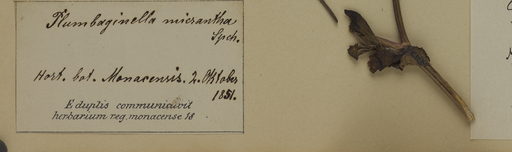 Plumbaginella micrantha
Spch.
Hort. bot. Monacensis. 2. Oktober
1851.
E duplis communicavit
herbarium reg. monacense 18